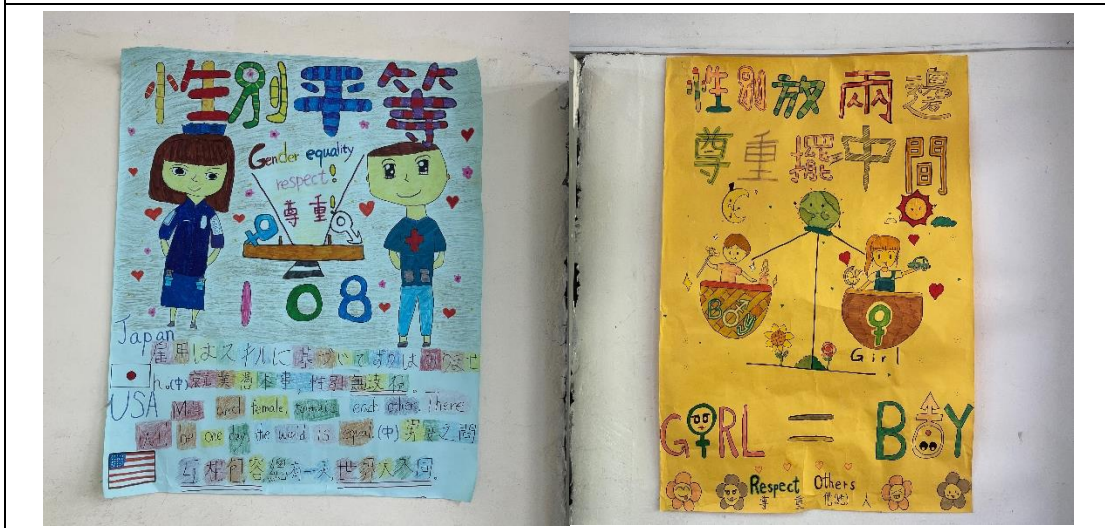 性別平等
Gender equality
respect!
尊重!
108
Japan
雇用はスキルに基づいて
(中)就業憑本事,性別無歧視
USA
and female, each other. There
one day the world is (中)男女之間
包容總有一天,世界大不同。
性別放兩邊
尊重擺中間
BOY
Girl
GIRL = BOY
Respect Others
尊重他人